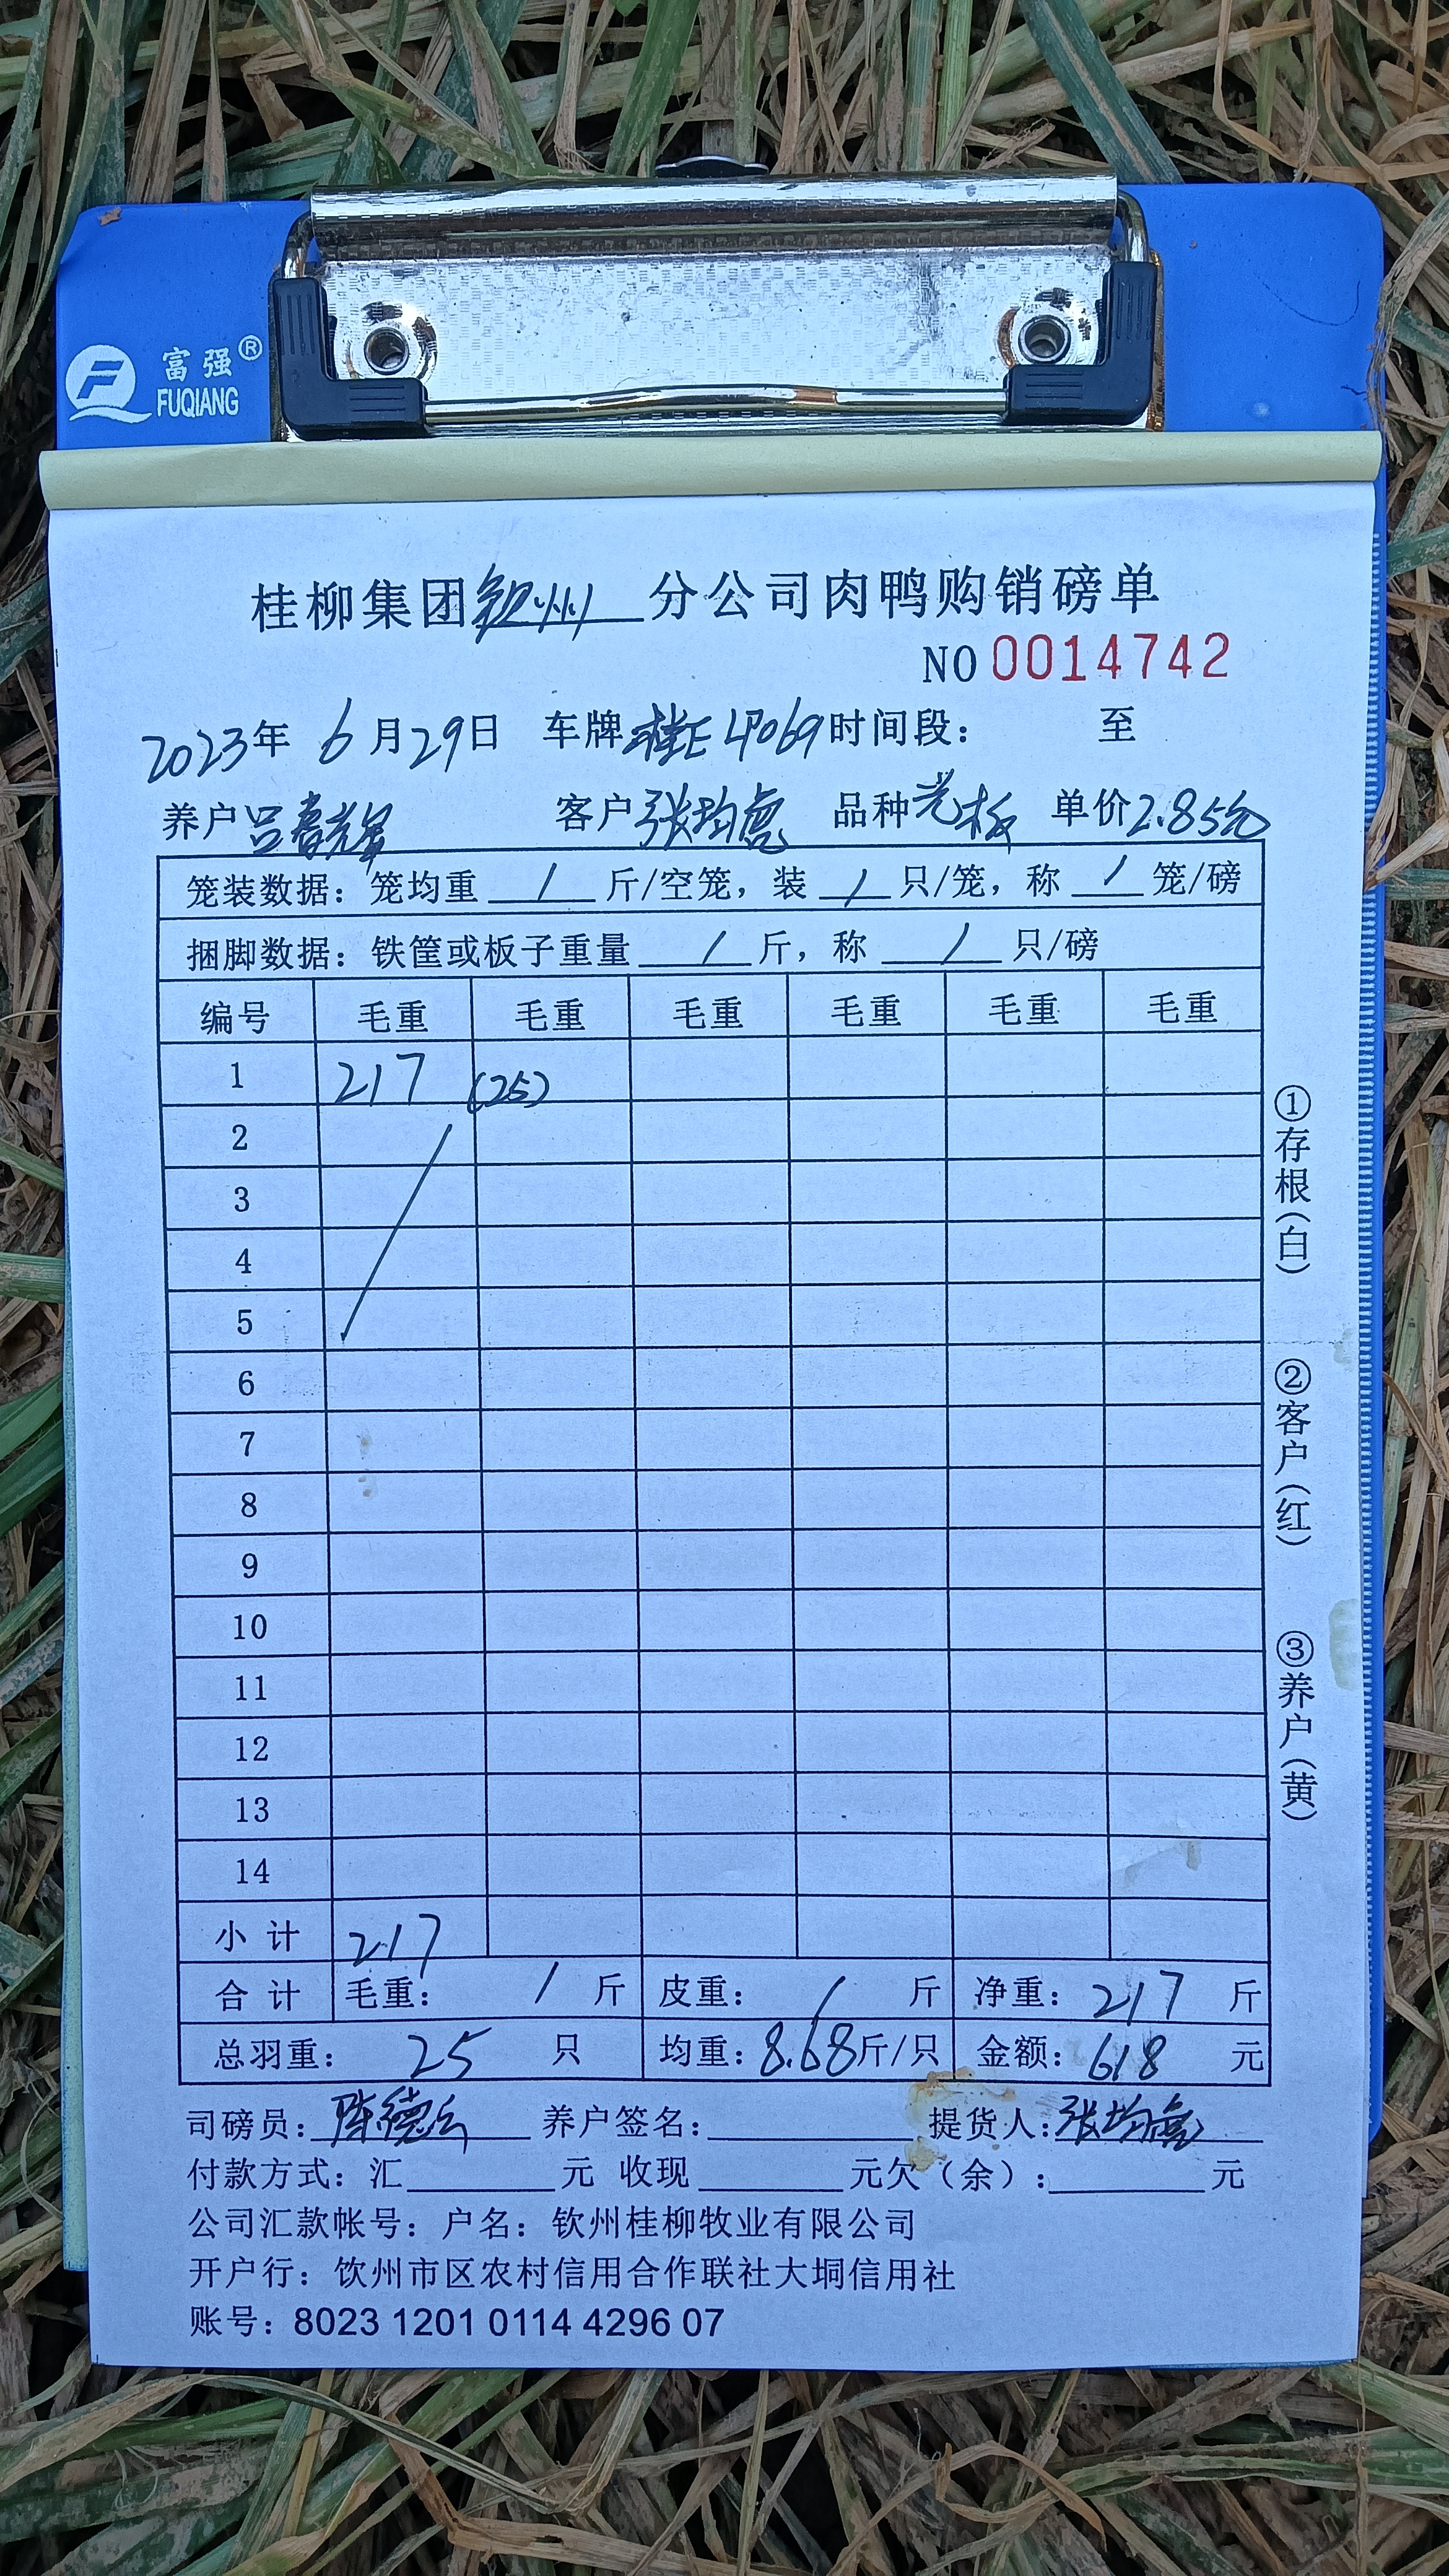 富强®
FUQIANG
桂柳集团钦州分公司肉鸭购销磅单
NO 0014742
2023年 6月29日 车牌桂E 4P069 时间段： 至
养户吕春辉 客户张均亮 品种光板 单价2.85元
笼装数据：笼均重 / 斤/空笼，装 / 只/笼，称 / 笼/磅
捆脚数据：铁筐或板子重量 / 斤，称 / 只/磅
编号 毛重 毛重 毛重 毛重 毛重 毛重
1 217 (25)
2
3
4
5
6
7
8
9
10
11
12
13
14
小计 217
合计 毛重： / 斤 皮重： / 斤 净重：217 斤
总羽重： 25 只 均重：8.68斤/只 金额：618 元
司磅员：陈德云 养户签名： 提货人：张均亮
付款方式：汇 元 收现 元欠（余）： 元
公司汇款帐号：户名：钦州桂柳牧业有限公司
开户行：饮州市区农村信用合作联社大垌信用社
账号：8023 1201 0114 4296 07
①存根（白）
②客户（红）
③养户（黄）